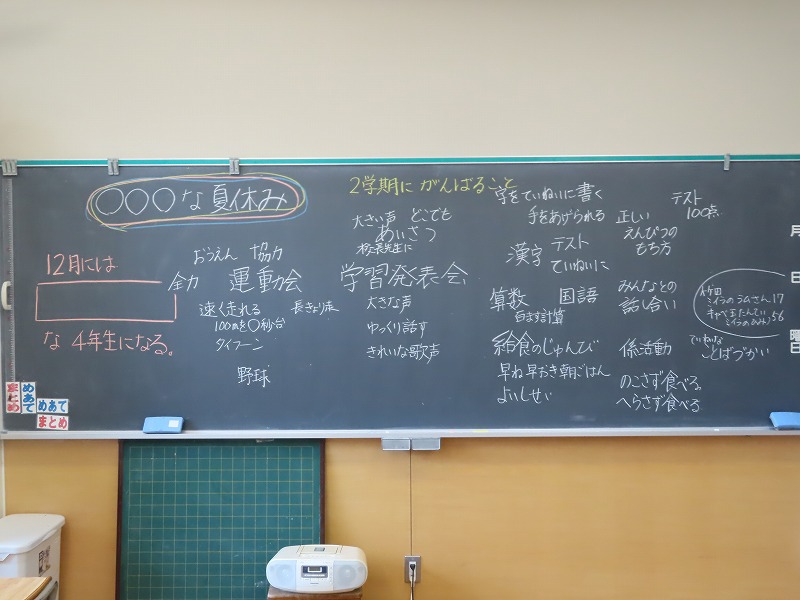 〇〇〇な夏休み
12月には
な 4年生になる。
2学期に がんばること
おうえん 協力
全力 運動会
速く走れる 長きょり走
100mを〇秒台
タイフーン
野球
大きい声 どこでも
あいさつ
校長先生に
学習発表会
大きな声
ゆっくり話す
きれいな歌声
字をていねいに書く
手をあげられる
漢字 テスト
ていねいに
算数 国語
百ます計算
給食のじゅんび
早ね早おき朝ごはん
よいしせい
正しい
えんぴつの
もち方
テスト
100点
みんなとの
話し合い
係活動
のこさず食べる
へらさず食べる
ていねいな
ことばづかい
竹田
ミイラのラムさん17
56
月
日
曜
日
まとめ
めあて
めあて
まとめ